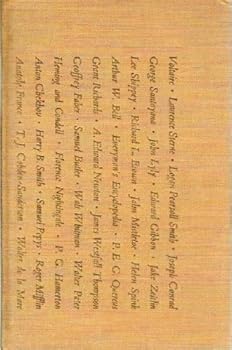 Voltaire • Lawrence Sterne • Logan Pearsall Smith • Joseph Conrad
George Santayana • John Lyly • Edward Gibbon • Jake Zeitlin
Lee Shippey • Richard L. Brown • John Masefield • Helen
Arthur W. Bell • Everyman's Encyclopedia • P. E. G. Quercus
Grant Richards • A. Edward Newton • James Westfall Thompson
Geoffrey Faber • Samuel Butler • Walt Whitman • Walter Pater
Heming and Condell • Florence Nightingale • P. G. Hamerton
Anton Chekhov • Harry B. Smith • Samuel Pepys • Roger Mifflin
Anatole France • T. J. Cobden-Sanderson • Walter de la Mare